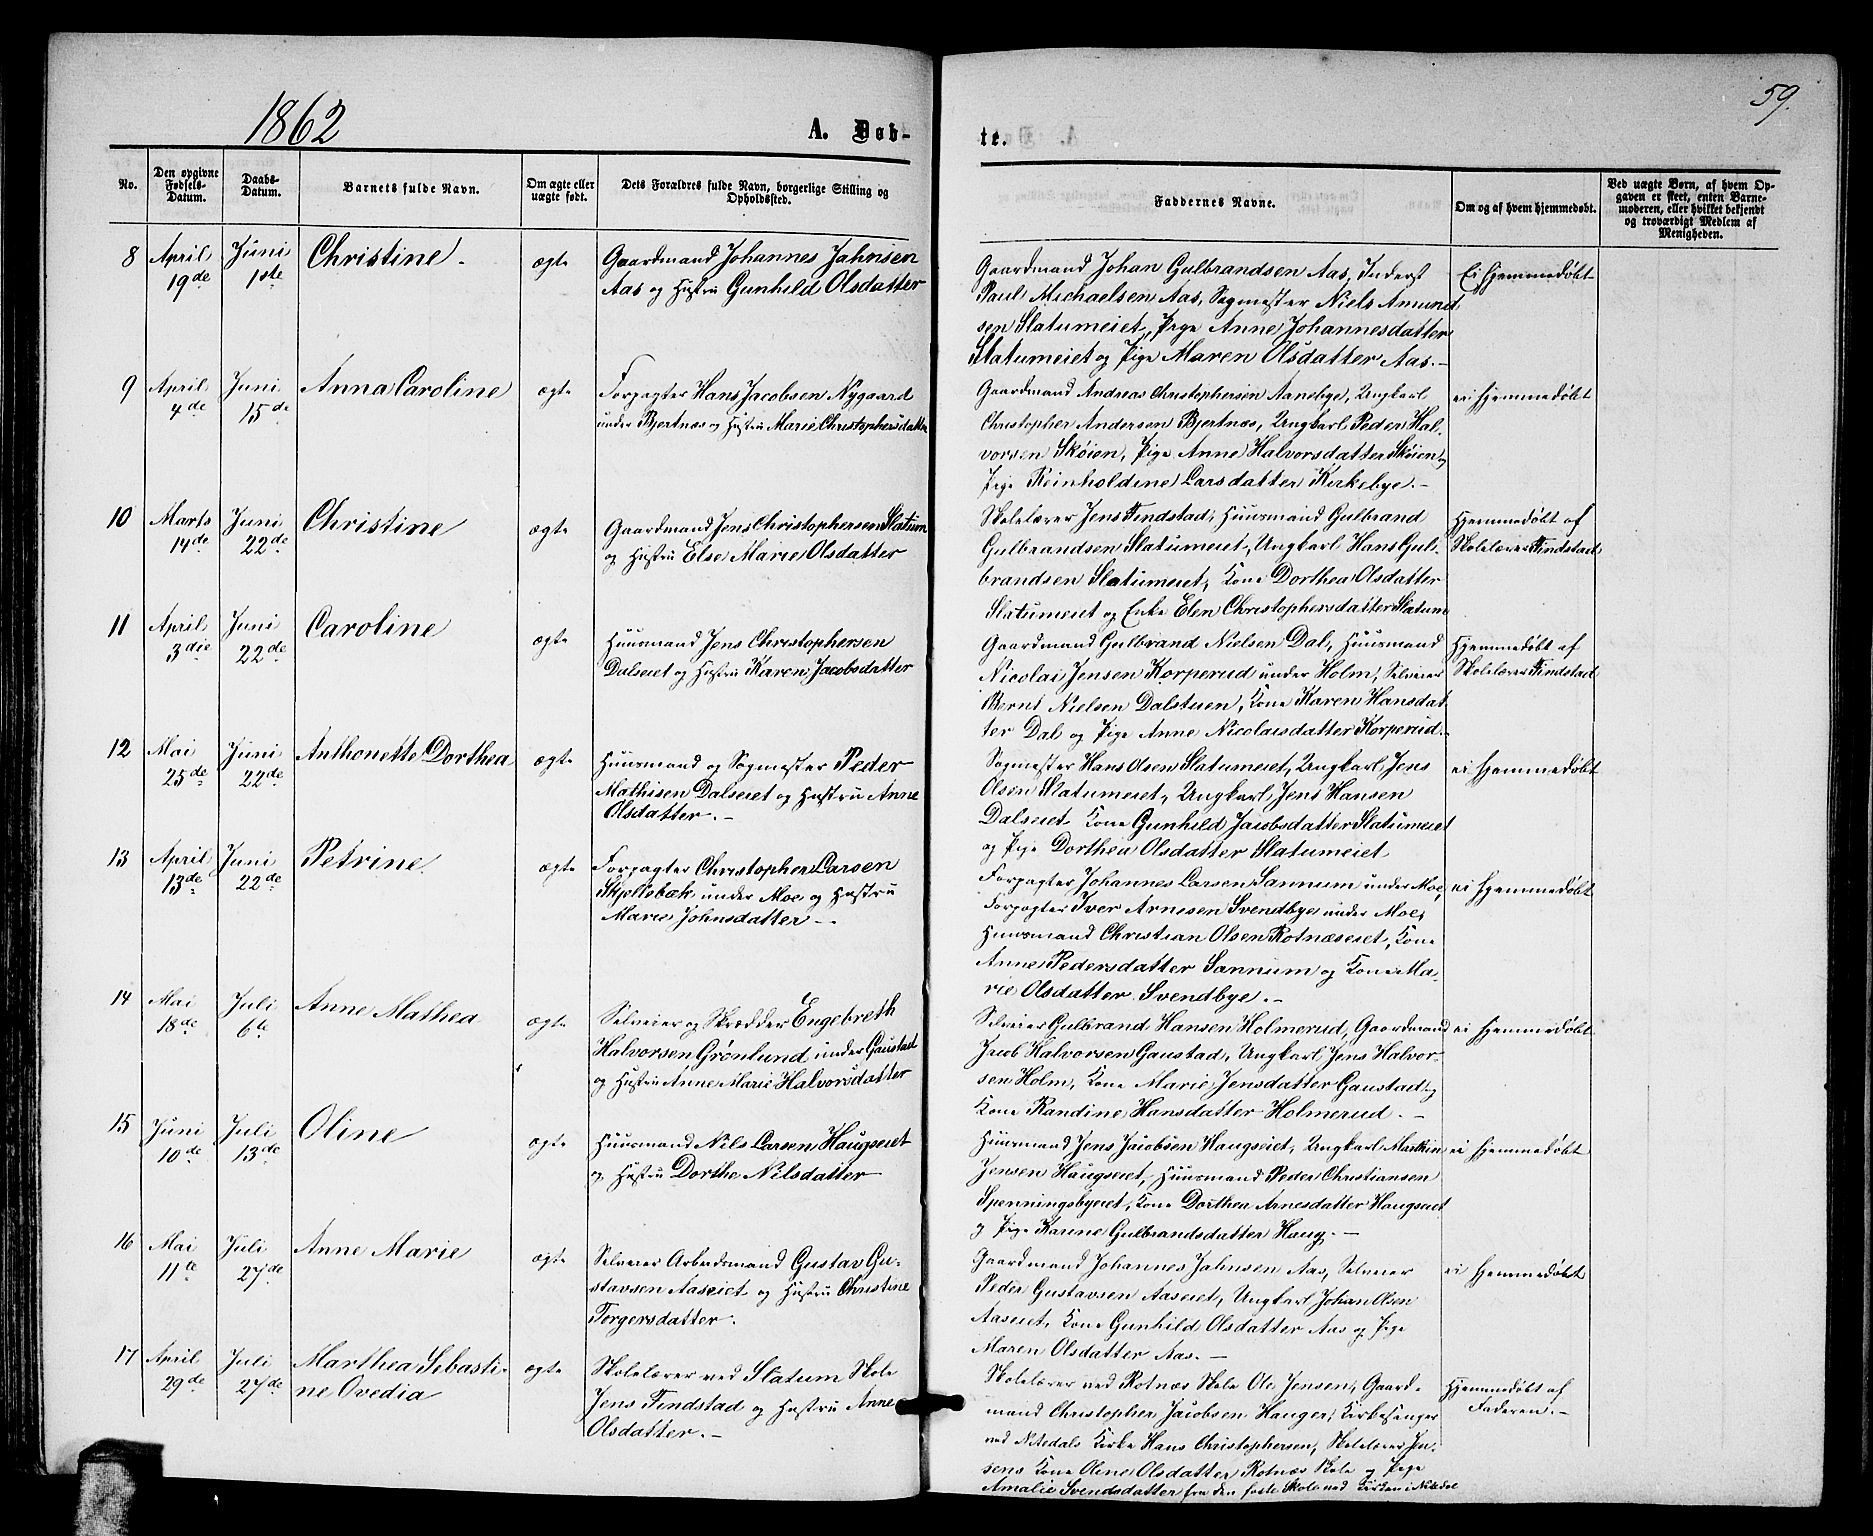 1862
A. Døb-
te.
59.
No.
Den opgivne Fødsels-Datum.
Daabs-Datum.
Barnets fulde Navn.
Om ægte eller uægte født.
Dets Forældres fulde Navn, borgerlige Stilling og Opholdssted.
Faddernes Navne.
Om og af hvem hjemmedøbt.
Ved uægte Børn, af hvem Opgaven er skeet, enten Barnemoderen, eller hvilket bekjendt og troværdigt Medlem af Menigheden.
8 April 19de Juni 1ste Christine ægte
Gaardmand Johannes Jahnsen
Aas og Hustru Gunhild Olsdatter
Gaardmand Johan Gulbrandsen Aas, Inderst
Paul Michaelsen Aas, Sagmester Niels Amund
sen Slatumeiet, Pige Anne Johannesdatter
Slatumeiet og Pige Maren Olsdatter Aas.-
Ei hjemmedøbt
9 April 4de Juni 15de Anna Caroline ægte
Forpagter Hans Jacobsen Nygaard
under Bjertnæs og Hustru Marie Christophersdatter
Gaardmand Andreas Christophersen Aanebye, Ungkarl
Christopher Andersen Bjertnæs, Ungkarl Peder Hal-
vorsen Skøien, Pige Anne Halvorsdatter Skøien og
Pige Reinholdine Larsdatter Kirkebye.-
ei hjemmedøbt
10 Marts 14de Juni 22de Christine ægte
Gaardmand Jens Christophersen Slatum
og Hustru Else Marie Olsdatter
Skolelærer Jens Findstad, Huusmand Gulbrand
Gulbrandsen Slatumeiet, Ungkarl Hans Gul-
brandsen Slatumeiet, Kone Dorthea Olsdatter
Slatumeiet og Enke Elen Christophersdatter Slatum
Hjemmedøbt af
Skolelærer Findstad
11 April 3die Juni 22de Caroline ægte
Huusmand Jens Christophersen
Dalseiet og Hustru Karen Jacobsdatter
Gaardmand Gulbrand Nielsen Dal, Huusmand
Nicolai Jensen Korperud under Holm, Selveier
Bernt Nielsen Dalstuen, Kone Karen Hansdat
ter Dal og Pige Anne Nicolaisdatter Korperud.-
Hjemmedøbt af
Skolelærer Findstad
12 Mai 25de Juni 22de Anthonette Dorthea ægte
Huusmand og Sagmester Peder
Mathisen Dalseiet og Hustru Anne
Olsdatter.-
Sagmester Hans Olsen Slatumeiet, Ungkarl Jens
Olsen Slatumeiet, Ungkarl Jens Hansen
Dalseiet Kone Gunhild Jacobsdatter Slatumeiet
og Pige Dorthea Olsdatter Slatumeiet
ei hjemmedøbt
13 April 13de Juni 22de Petrine. ægte
Forpagter Christopher Larsen
Skjøllebæk under Moe og Hustru
Marie Johnsdatter.-
Forpagter Johannes Larsen Sannum under Moe,
Forpagter Iver Arnesen Svendbye under Moe,
Huusmand Christian Olsen Rotnæseiet, Kone
Anne Pedersdatter Sannum og Kone Ma-
rie Olsdatter Svendbye.-
ei hjemmedøbt
14 Mai 18de Juli 6te Anne Mathea ægte
Selveier og Skrædder Engebreth
Halvorsen Grønlund under Gaustad
og Hustru Anne Marie Halvorsdatter
Selveier Gulbrand Hansen Holmerud, Gaardmand
Jacob Halvorsen Gaustad, Ungkarl Jens Halvor-
sen Holm, Kone Marie Jensdatter Gaustad og
Kone Randine Hansdatter Holmerud.-
ei hjemmedøbt
15 Juni 10de Juli 13de Oline ægte
Huusmand Nils Larsen Haugseiet
og Hustru Dorthe Nilsdatter
Huusmand Jens Jacobsen Haugseiet, Ungkarl Marthin
Jensen Haugseiet, Huusmand Peder Christiansen
Spenningsbyeiet, Kone Dorthea Arnesdatter Haugseiet
og Pige Karine Gulbrandsdatter Haug.-
ei hjemmedøbt
16 Mai 11te Juli 27de Anne Marie ægte
Selveier Arbeidsmand Gustav Gu-
stavsen Aaseiet og Hustru Christine
Torgersdatter.
Gaardmand Johannes Jahnsen Aas, Selveier
Peder Gustavsen Aaseiet, Ungkarl Johan Olsen
Aaseiet, Kone Gunhild Olsdatter Aas og Pige
Maren Olsdatter Aas.-
ei hjemmedøbt
17 April 29de Juli 27de Marthea Sebasti-
ne Ovedia ægte
Skolelærer ved Slatum Skole
Jens Findstad og Hustru Anne
Olsdatter.-
Skolelærer ved Rotnæs Skole Ole Jensen, Gaard-
mand Christopher Jacobsen Hauger, Kirkesanger
ved Nitedals Kirke Hans Christophersen, Skolelærer Jen-
sens Kone Oline Olsdatter Rotnæs Skole og Pige
Amalie Svendsdatter fra den faste Skole ved Kirken i Nitedal
Hjemmedøbt af
Faderen.-